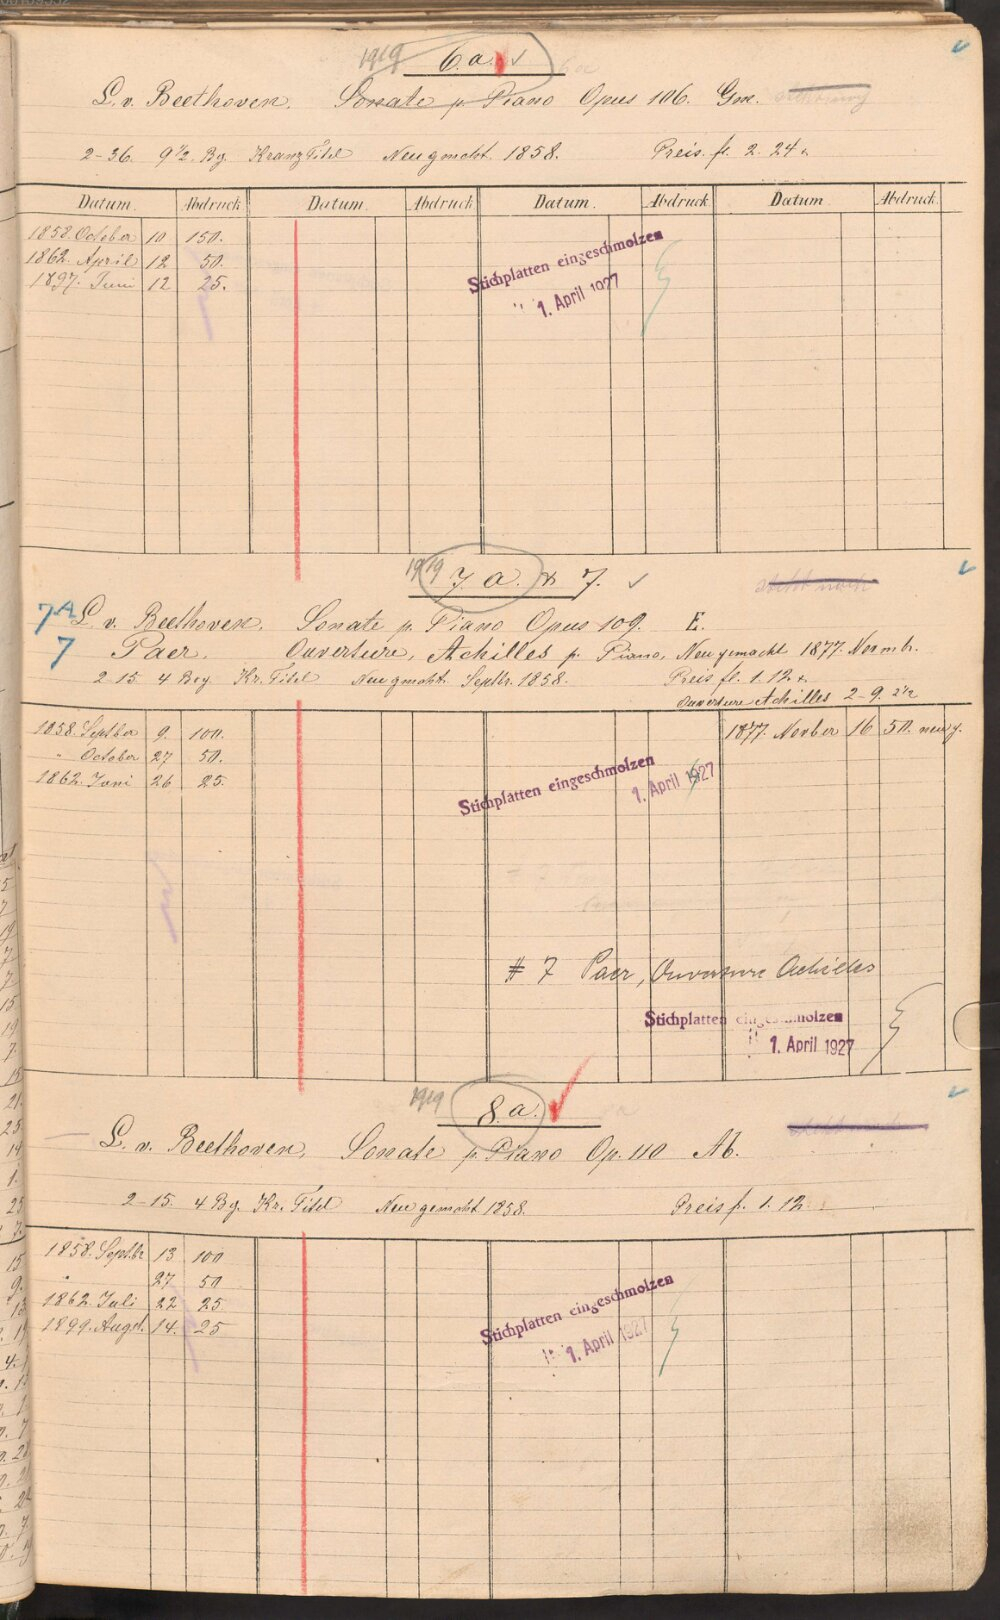 1919 6.a.
L. v. Beethoven. Sonate p. Piano Opus 106. Gm.
2-36. 9 1/2. Bg. Kranz Titel Neu gmcht. 1858. Preis. fl. 2. 24
Datum. Abdruck Datum. Abdruck Datum. Abdruck Datum Abdruck
1858. October 10 150.
1862. April 12 50.
1897. Juni 12 25.
Stichplatten eingeschmolzen
1. April 1927
1919 7 a. & 7.
7A L. v. Beethoven. Sonate p. Piano Opus 109. E.
7 Paer. Ouverture, Achilles p. Piano, Neu gemacht 1877. Novmb.
2-15 4 Bog Kr. Titel Neu gmcht. Septbr. 1858. Preis fl. 1. 12
Ouverture Achilles 2-9. 2 1/2
1858. Septber 9. 100.
" October 27 50.
1862. Juni 26 25.
1877. Novber 16 50. neu g.
Stichplatten eingeschmolzen
1. April 1927
# 7 Paer, Ouverture Achilles
Stichplatten eingeschmolzen
1. April 1927
1919 8.a.
L. v. Beethoven, Sonate p. Piano Op. 110 Ab.
2-15. 4 Bg. Kr. Titel Neu gemcht 1858. Preis f. 1. 12
1858. Septbr 13 100
" 27 50
1862. Juli 22 25
1899. Augt. 14. 25
Stichplatten eingeschmolzen
1. April 1927